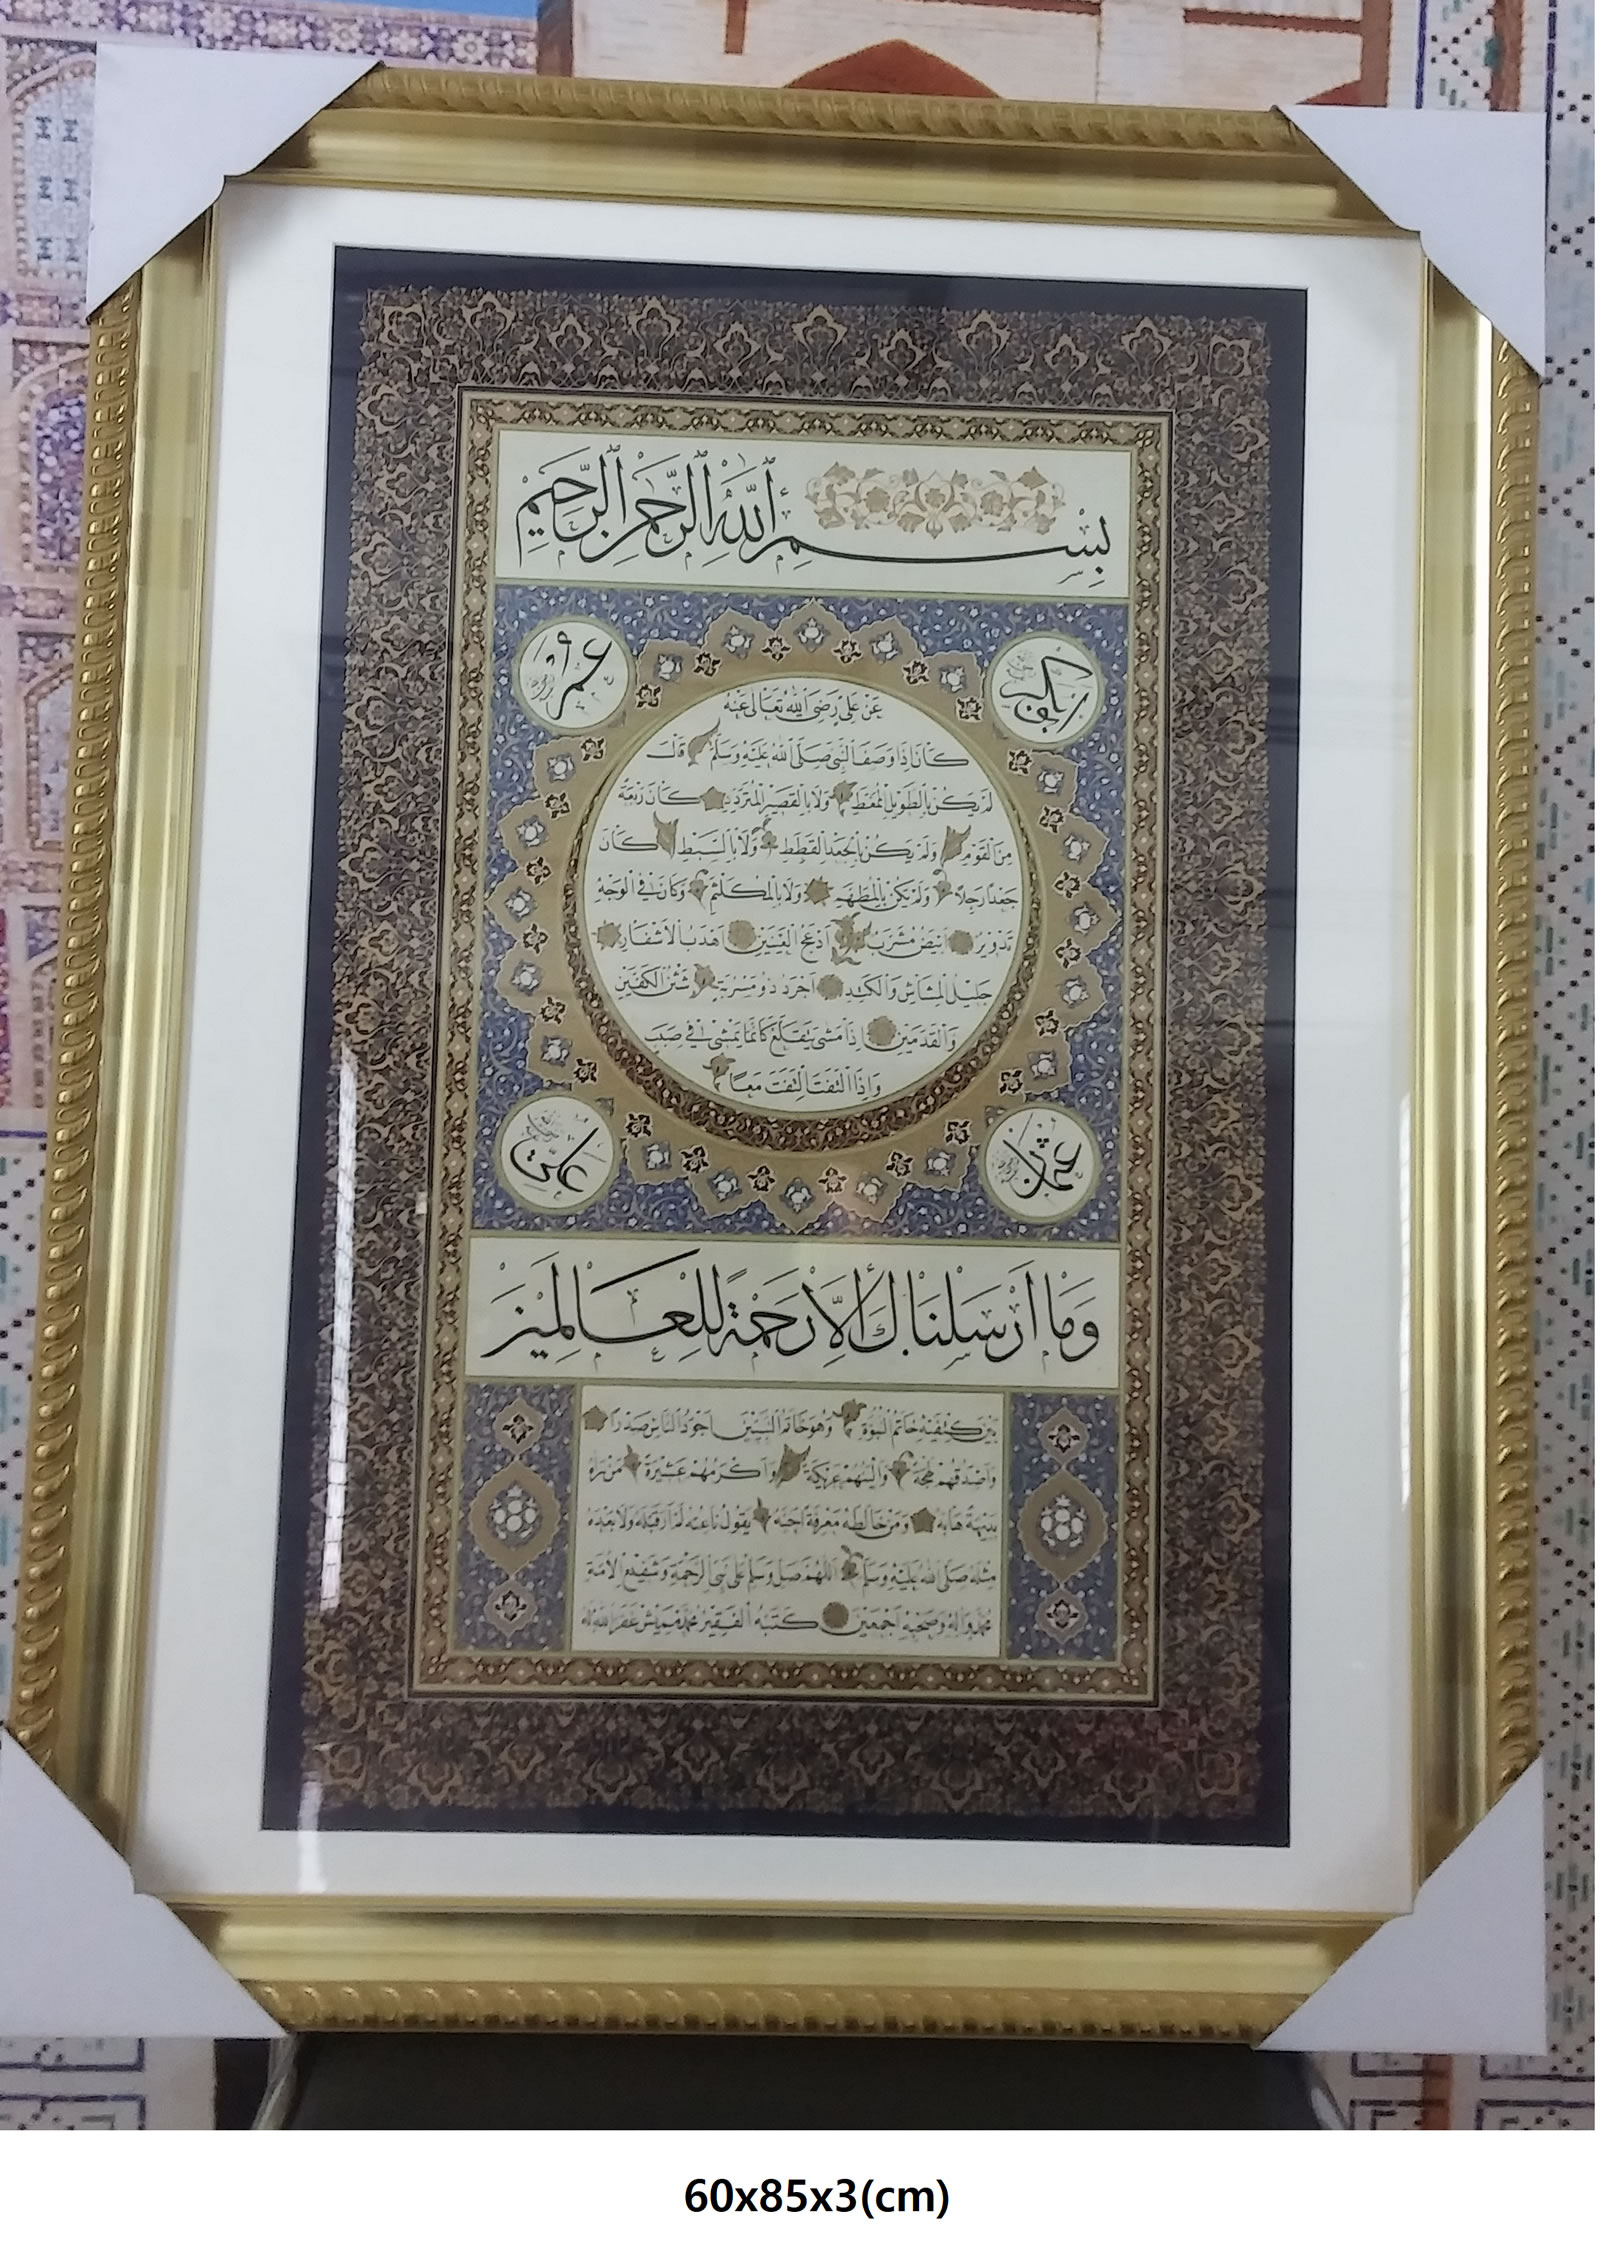 بِسْمِ اللّٰهِ الرَّحْمٰنِ الرَّحِيمِ
عُمَر
ابو بكر
عَنْ عَلِيٍّ رَضِيَ اللّٰهُ تَعَالٰى عَنْهُ
كَانَ اِذَا وَصَفَ النَّبِيَّ صَلَّى اللّٰهُ عَلَيْهِ وَسَلَّمَ قَالَ
لَمْ يَكُنْ بِالطَّوِيلِ الْمُمَّغِطِ وَلَا بِالْقَصِيرِ الْمُتَرَدِّدِ كَانَ رَبْعَةً
مِنَ الْقَوْمِ وَلَمْ يَكُنْ بِالْجَعْدِ الْقَطَطِ وَلَا بِالسَّبِطِ كَانَ
جَعْدًا رَجِلًا وَلَمْ يَكُنْ بِالْمُطَهَّمِ وَلَا بِالْمُكَلْثَمِ وَكَانَ فِي الْوَجْهِ
تَدْوِيرٌ اَبْيَضُ مُشْرَبٌ اَدْعَجُ الْعَيْنَيْنِ اَهْدَبُ الْاَشْفَارِ
جَلِيلُ الْمُشَاشِ وَالْكَتَدِ اَجْرَدُ ذُو مَسْرُبَةٍ شَثْنُ الْكَفَّيْنِ
وَالْقَدَمَيْنِ اِذَا مَشٰى يَتَقَلَّعُ كَاَنَّمَا يَمْشِي فِي صَبَبٍ
وَاِذَا الْتَفَتَ الْتَفَتَ مَعًا
علي
عثمان
وَمَا اَرْسَلْنَاكَ اِلَّا رَحْمَةً لِلْعَالَمِينَ
بَيْنَ كَتِفَيْهِ خَاتَمُ النُّبُوَّةِ وَهُوَ خَاتَمُ النَّبِيِّينَ اَجْوَدُ النَّاسِ صَدْرًا
وَاَصْدَقُهُمْ لَهْجَةً وَاَلْيَنُهُمْ عَرِيكَةً وَاَكْرَمُهُمْ عَشِيرَةً مَنْ رَاٰهُ
بَدِيهَةً هَابَهُ وَمَنْ خَالَطَهُ مَعْرِفَةً اَحَبَّهُ يَقُولُ نَاعِتُهُ لَمْ اَرَ قَبْلَهُ وَلَا بَعْدَهُ
مِثْلَهُ صَلَّى اللّٰهُ عَلَيْهِ وَسَلَّمَ اَللّٰهُمَّ صَلِّ وَسَلِّمْ عَلٰى نَبِيِّ الرَّحْمَةِ وَشَفِيعِ الْاُمَّةِ
مُحَمَّدٍ وَاٰلِهِ وَصَحْبِهِ اَجْمَعِينَ كَتَبَهُ الْفَقِيرُ مُحَمَّد غَفَرَ اللّٰهُ لَهُ
60x85x3(cm)